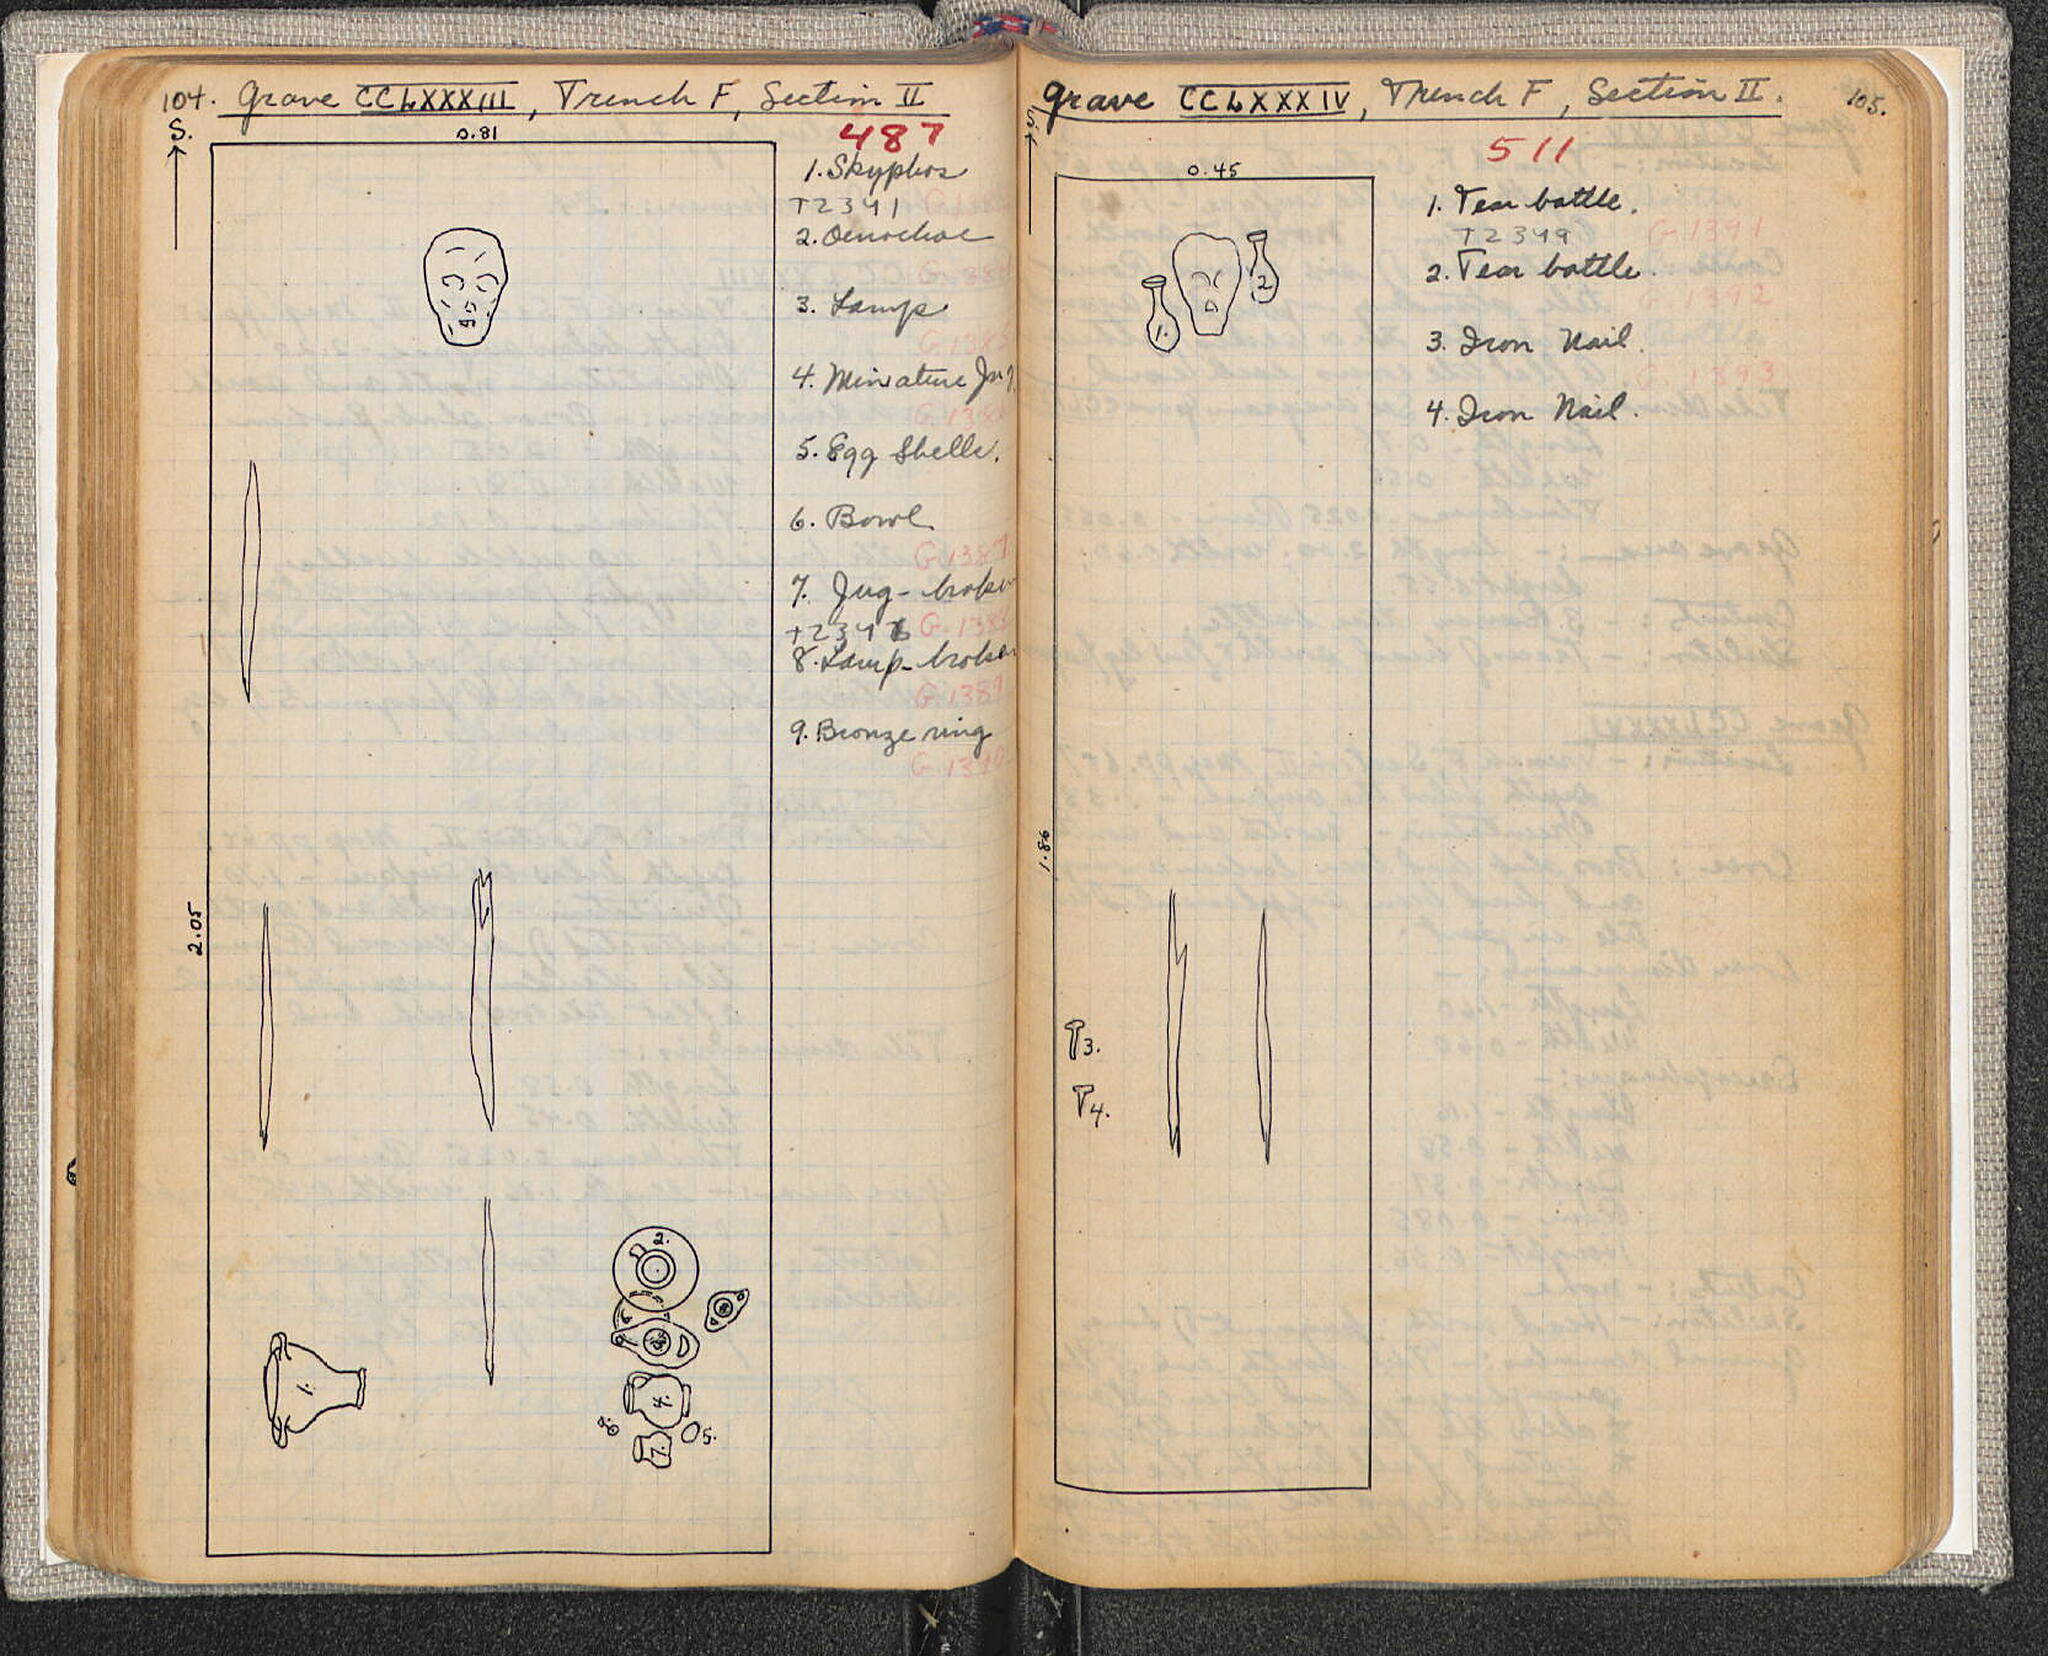 104. Grave CCLXXXIII, Trench F, Section II
S.
0.81
487
1. Skyphos
T2341
2. Oenochoe
3. Lamp
4. Miniature Jug
5. Egg Shells.
6. Bowl
G 1387
7. Jug - broken
8. Lamp - broken
G 1389
9. Bronze ring
G 1390
2.05
2.
1.
4.
5.
7.
Grave CCLXXXIV, Trench F, Section II. 105.
S.
511
0.45
1. Tear bottle.
T2349 G 1391
2. Tear bottle.
G 1392
3. Iron Nail.
G 1393
4. Iron Nail.
1.
2
1.86
3.
4.